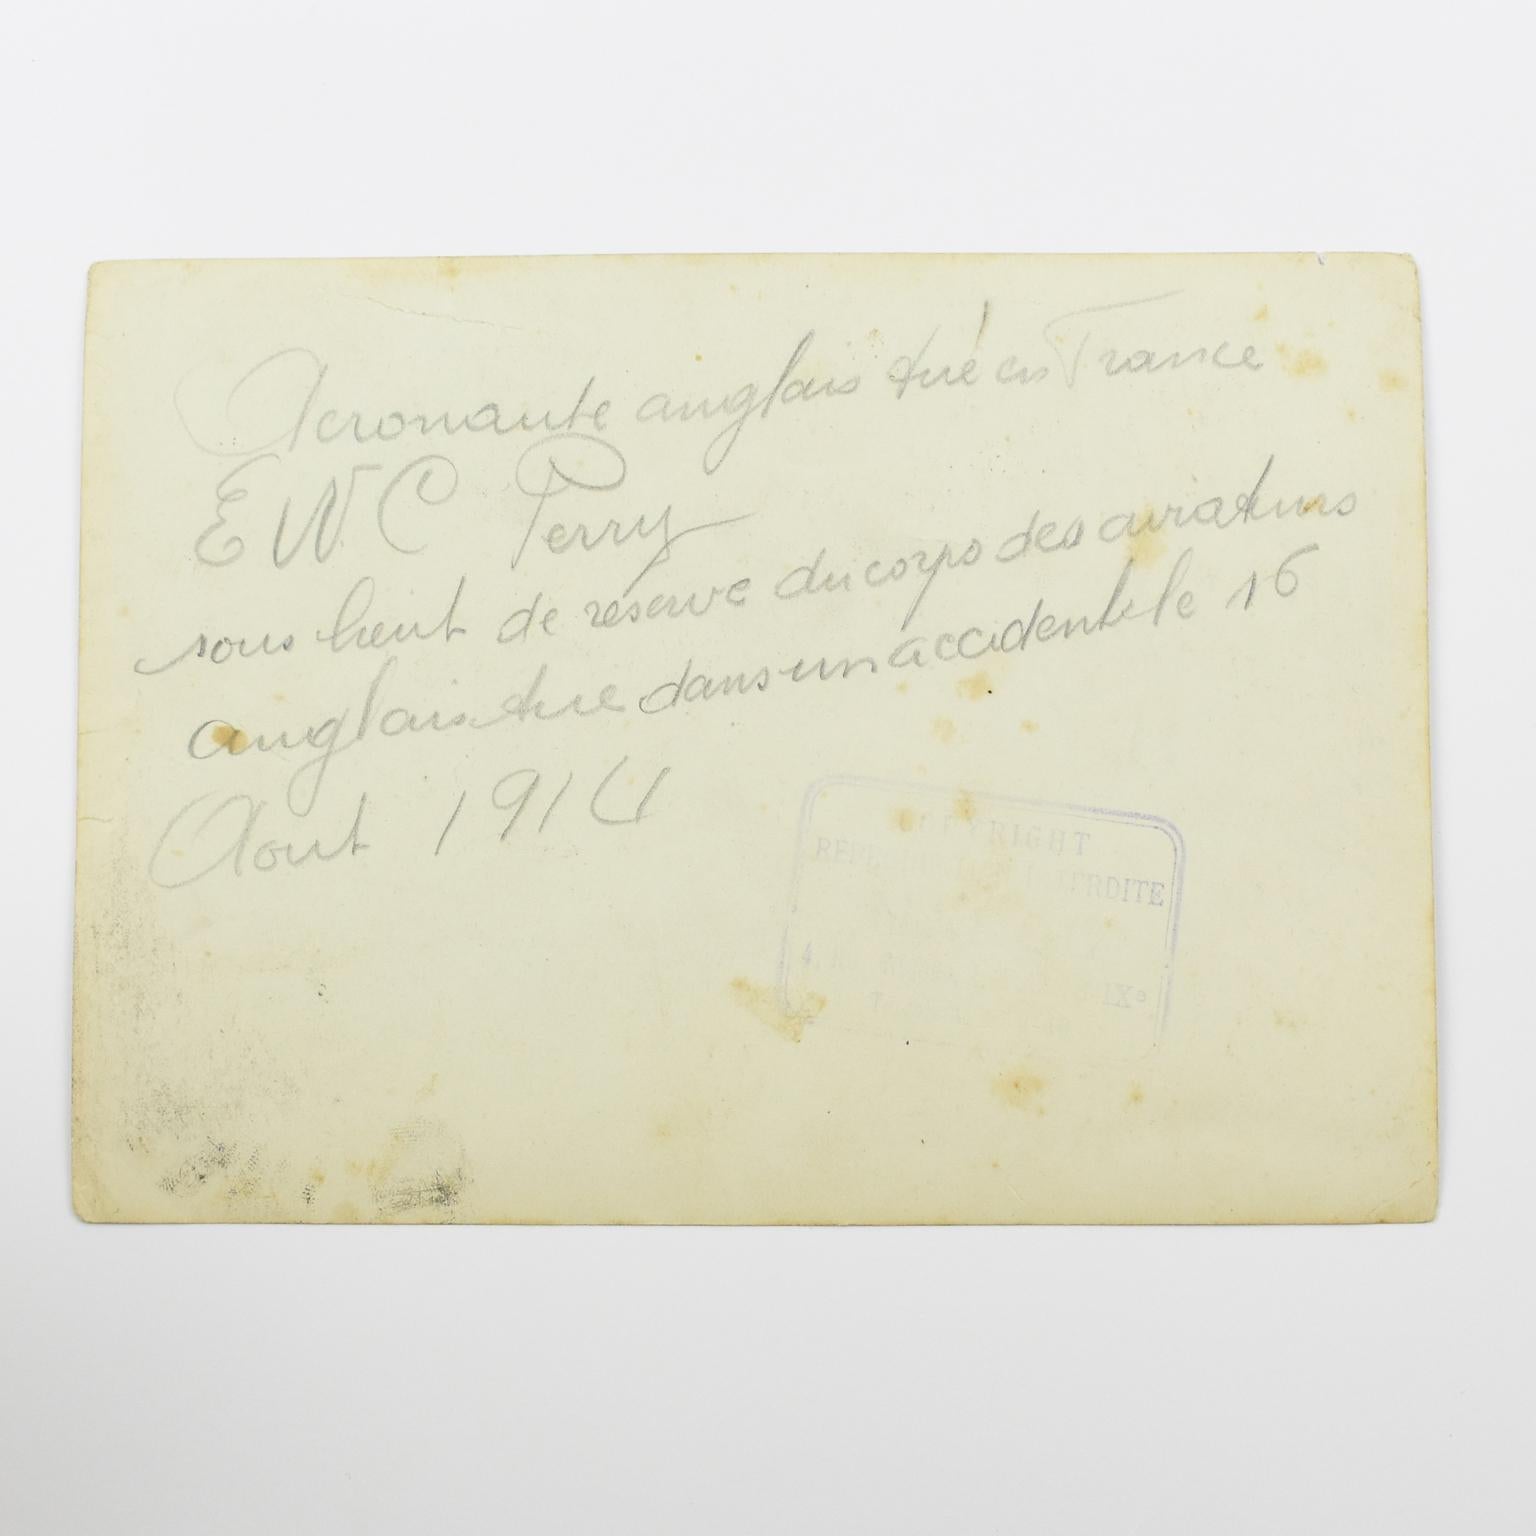 Aeronaute anglais tué en France
E W C Perry
sous lieut de réserve du corps des aviateurs
anglais tué dans un accident le 16
Aout 1914
COPYRIGHT
REPRODUCTION INTERDITE
4, 
IXe